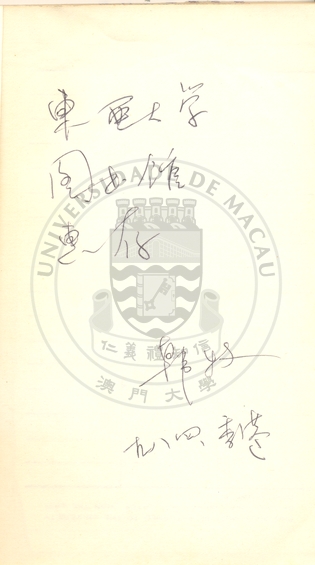 東亞大学
图书館
惠存
韓牧
一九八四、香港
UNIVERSIDADE DE MACAU
仁義禮知信
澳門大學